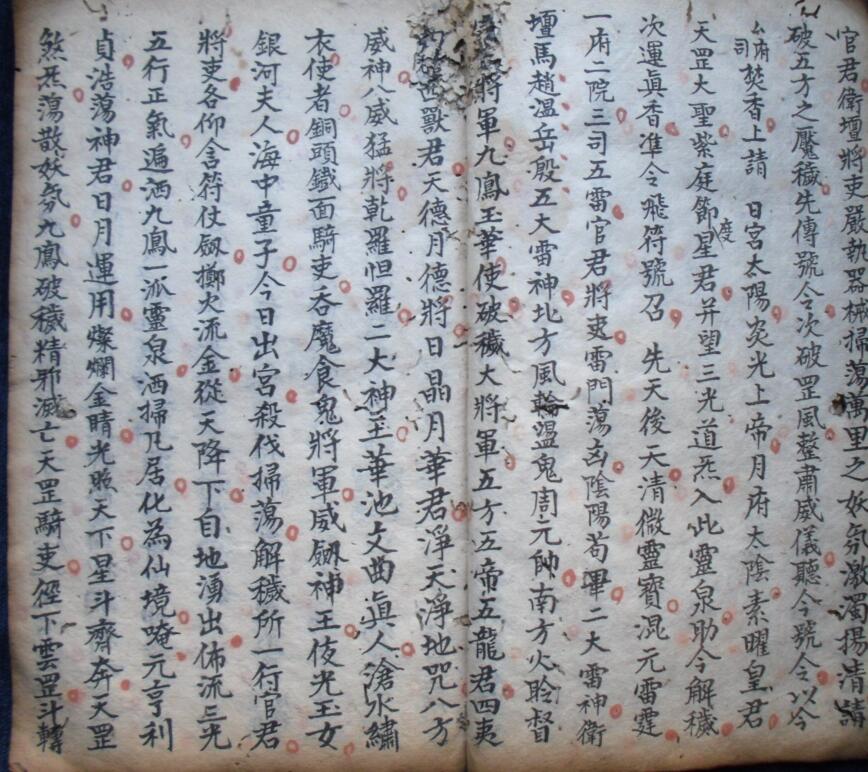 官君衛壇將吏嚴執器械掃蕩萬里之妖氛激濁揚清謹
破五方之魘穢先傳號令次破罡風整肅威儀聽令號令以今
公府司焚香上請 日宮太陽炎光上帝月府太陰素曜皇君
天罡大聖紫庭節度星君并望三光道炁入此靈泉助令解穢
次運真香准令飛符號召 先天後天清微靈寶混元雷霆
一府二院三司五雷官君將吏雷門蕩凶陰陽苟畢二大雷神衛
壇馬趙溫岳殷五大雷神北方風輪溫鬼周元帥南方火聆督
將軍九鳳玉華使破穢大將軍五方五帝五龍君四夷
獸君天德月德將日晶月華君淨天淨地咒八方
威神八威猛將乾羅怛羅二大神王華池文曲真人滄水繡
衣使者銅頭鐵面騎吏吞魔食鬼將軍威劔神王伎光玉女
銀河夫人海中童子今日出宮殺伐掃蕩解穢所一行官君
將吏各仰含符仗劔擲火流金從天降下自地湧出佈流三光
五行正氣遍洒九鳳一派靈泉洒掃凡居化為仙境唵元亨利
貞浩蕩神君日月運用燦爛金睛光照天下星斗齊奔天罡
煞炁蕩散妖氛九鳳破穢精邪滅亡天罡騎吏徑下雲罡斗轉